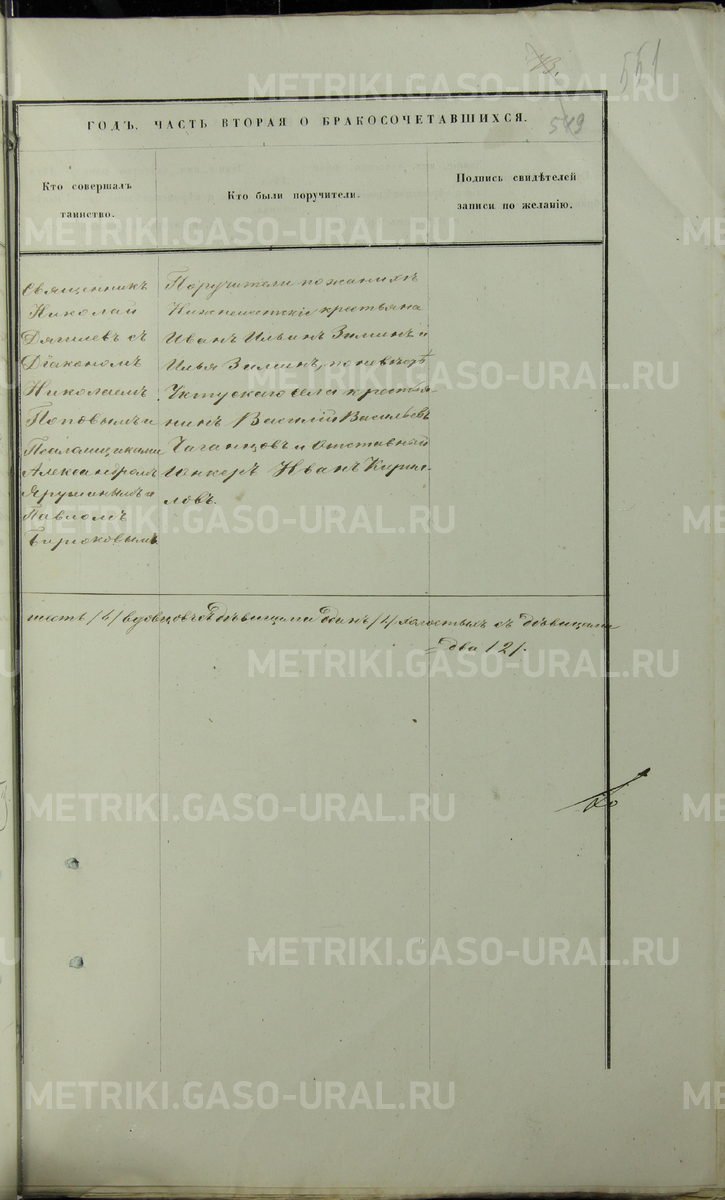 551
549
ГОДЪ. ЧАСТЬ ВТОРАЯ О БРАКОСОЧЕТАВШИХСЯ.
Кто совершалъ
таинство.
Кто были поручители.
Подпись свидѣтелей
записи по желанію.
Священникъ
Николай
Дягилевъ съ
Діакономъ
Николаемъ
Поповымъ и
Псаломщиками
Александромъ
Ярушинымъ и
Павломъ
Бирюковымъ
Поручители по женихѣ
крестьяна
Иванъ Ильинъ Зиминъ и
Илья Зиминъ, по невѣстѣ
Уктускаго села крестья-
нинъ Василій Васильевъ
Чаганцовъ и Отставный
Юнкеръ Иванъ Кирил-
ловъ.
вдовцовъ съ дѣвицами одинъ /1/ холостыхъ съ дѣвицами
два /2/.
METRIKI.GASO-URAL.RU